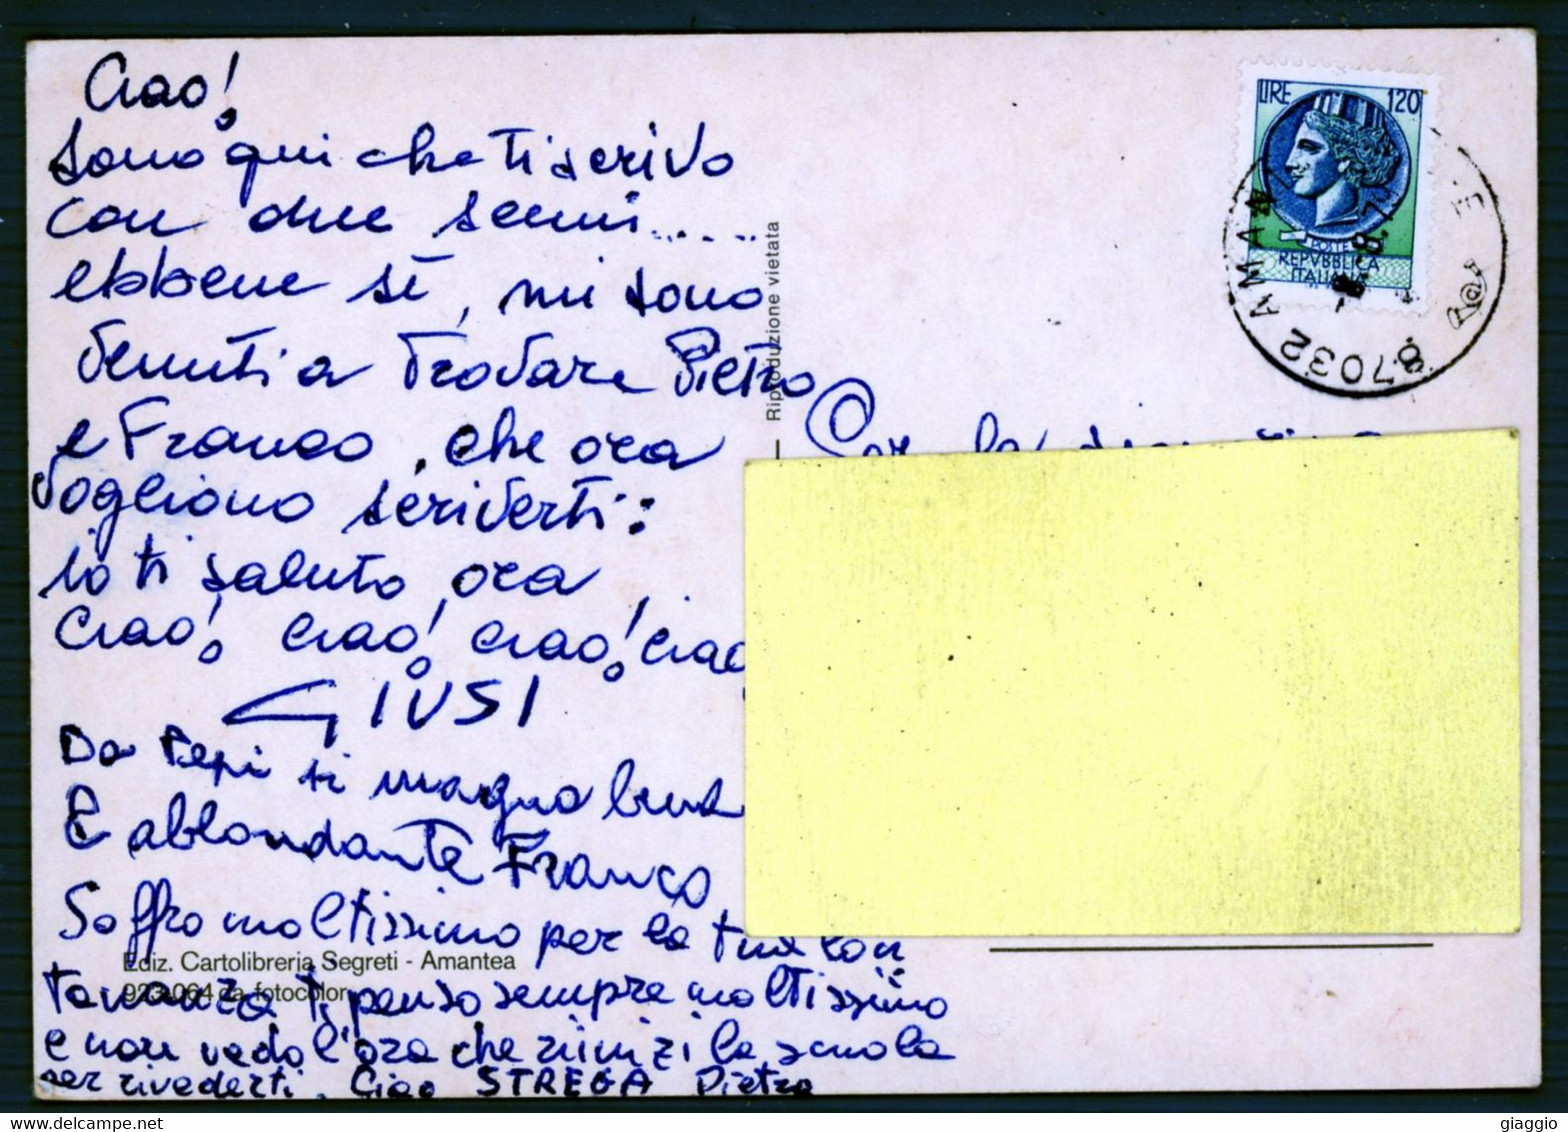 Ciao!
sono qui che ti scrivo
con due scemi.....
ebbene sì, mi sono
venuti a trovare Pietro
e Franco, che ora
vogliono scriverti:
io ti saluto, ora,
ciao! ciao! ciao! ciao
GIUSI
Da Pepi si magna
E abbondante Franco
Soffro moltissimo per la tua lon
tananza ti penso sempre moltissimo
e non vedo l'ora che rinizi la scuola
per rivederti. Ciao STREGA Pietro
Ediz. Cartolibreria Segreti - Amantea
da fotocolor
Riproduzione vietata
LIRE 120
POSTE
REPVBBLICA
ITALIANA
87032 AMA
giaggio